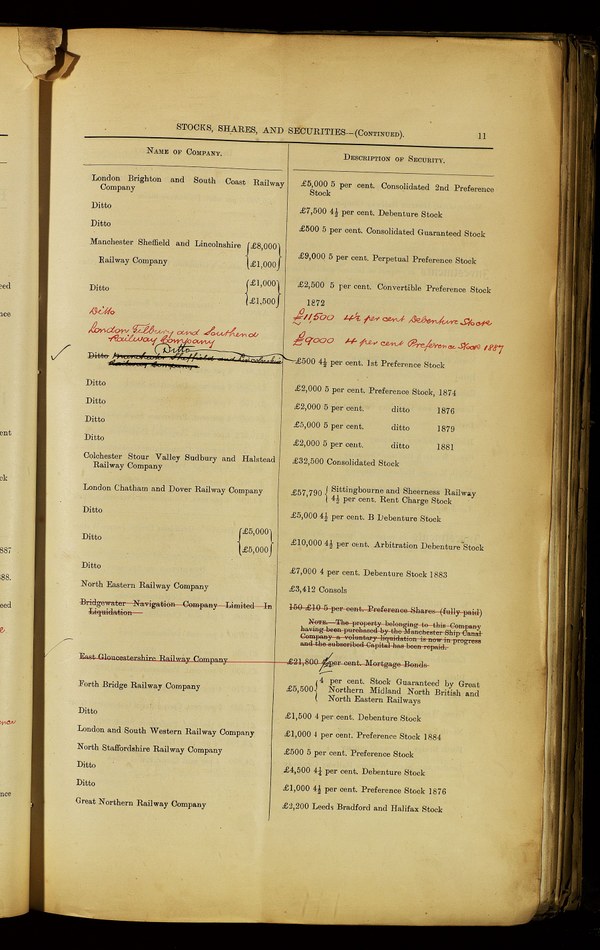 STOCKS, SHARES, AND SECURITIES—(CONTINUED). 11
NAME OF COMPANY. DESCRIPTION OF SECURITY.
London Brighton and South Coast Railway Company £5,000 5 per cent. Consolidated 2nd Preference Stock
Ditto £7,500 4½ per cent. Debenture Stock
Ditto £500 5 per cent. Consolidated Guaranteed Stock
Manchester Sheffield and Lincolnshire Railway Company {£8,000 £1,000} £9,000 5 per cent. Perpetual Preference Stock
Ditto {£1,000 £1,500} £2,500 5 per cent. Convertible Preference Stock 1872
Ditto £11500 4½ per cent Debenture Stock
London Tilbury and Southend Railway Company £9000 4 per cent Preference Stock 1887
Ditto
Ditto Manchester Sheffield and Lincolnshire Railway Company £500 4½ per cent. 1st Preference Stock
Ditto £2,000 5 per cent. Preference Stock, 1874
Ditto £2,000 5 per cent. ditto 1876
Ditto £5,000 5 per cent. ditto 1879
Ditto £2,000 5 per cent. ditto 1881
Colchester Stour Valley Sudbury and Halstead Railway Company £32,500 Consolidated Stock
London Chatham and Dover Railway Company £57,790 { Sittingbourne and Sheerness Railway 4½ per cent. Rent Charge Stock
Ditto £5,000 4½ per cent. B Debenture Stock
Ditto {£5,000 £5,000} £10,000 4½ per cent. Arbitration Debenture Stock
Ditto £7,000 4 per cent. Debenture Stock 1883
North Eastern Railway Company £3,412 Consols
Bridgewater Navigation Company Limited In Liquidation 150 £10 5 per cent. Preference Shares (fully paid)
NOTE.—The property belonging to this Company
having been purchased by the Manchester Ship Canal
Company a voluntary liquidation is now in progress
and the subscribed Capital has been repaid.
East Gloucestershire Railway Company £21,800 per cent. Mortgage Bonds
Forth Bridge Railway Company £5,500 { 4 per cent. Stock Guaranteed by Great Northern Midland North British and North Eastern Railways
Ditto £1,500 4 per cent. Debenture Stock
London and South Western Railway Company £1,000 4 per cent. Preference Stock 1884
North Staffordshire Railway Company £500 5 per cent. Preference Stock
Ditto £4,500 4¼ per cent. Debenture Stock
Ditto £1,000 4½ per cent. Preference Stock 1876
Great Northern Railway Company £2,200 Leeds Bradford and Halifax Stock